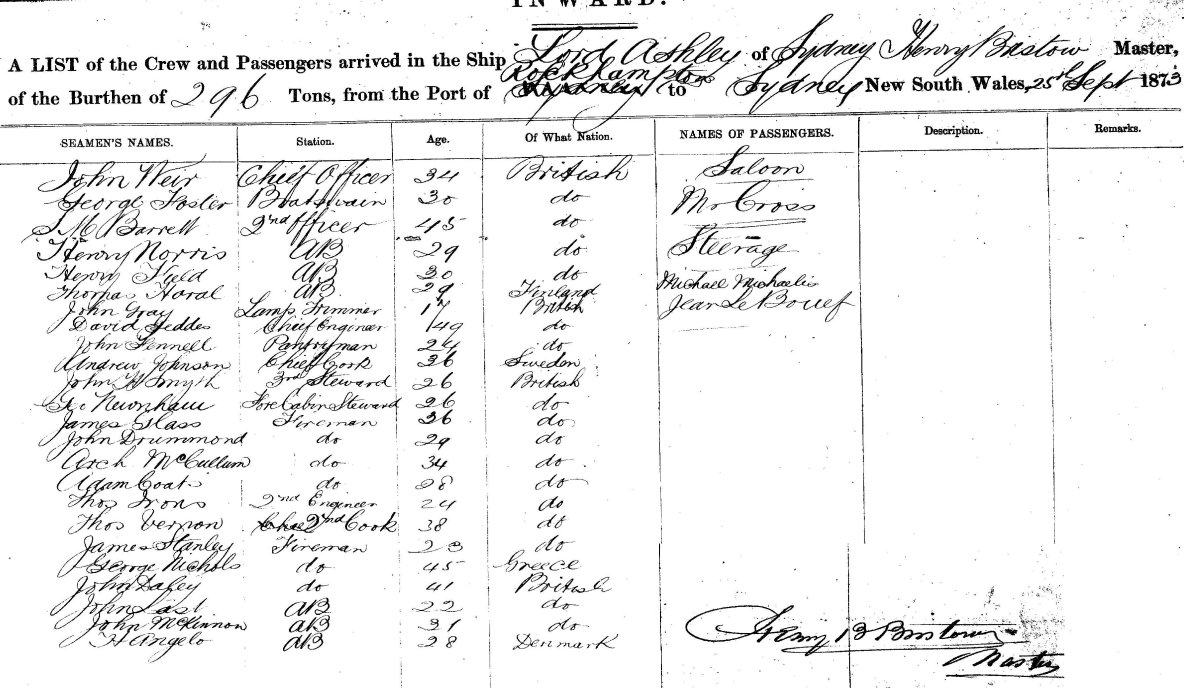 INWARD.
A LIST of the Crew and Passengers arrived in the Ship Lord Ashley of Sydney Henry Bristow Master,
of the Burthen of 296 Tons, from the Port of Rockhampton to Sydney New South Wales, 25th Sept 1873
SEAMEN'S NAMES. Station. Age. Of What Nation. NAMES OF PASSENGERS. Description. Remarks.
John Weir Chief Officer 34 British Saloon
George Foster Boatswain 30 do Mr Cross
S M Barrett 2nd Officer 45 do
Henry Norris AB 29 do Steerage
Henry Field AB 30 do Michael Michaelis
Thomas Haral AB 29 Finland Jean Le Bouef
John Gray Lamp Trimmer 17 British
David Geddes Chief Engineer 49 do
John Fennell Pantryman 24 do
Andrew Johnson Chief Cook 36 Sweden
John H Smyth 3rd Steward 26 British
Newnham Fore Cabin Steward 26 do
James Glass Fireman 36 do
John Drummond do 29 do
Arch McCullum do 34 do
Adam Coats do 28 do
Thos Irons 2nd Engineer 24 do
Thos Vernon 2nd Cook 38 do
James Stanley Fireman 23 do
George Nichols do 45 Greece
John Daley do 41 British
John Last AB 22 do
John McKinnon AB 31 do
H Angelo AB 28 Denmark
Henry B Bristow
Master